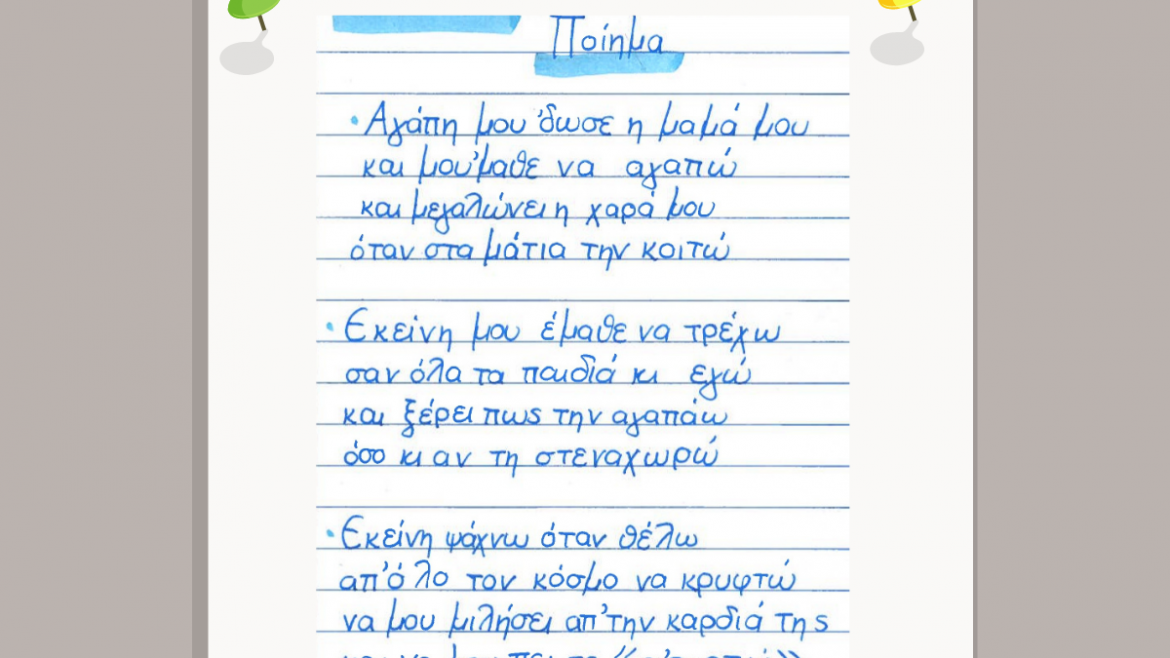 Ποίημα
• Αγάπη μου 'δωσε η μαμά μου
και μου'μαθε να αγαπώ
και μεγαλώνει η χαρά μου
όταν στα μάτια την κοιτώ
• Εκείνη μου έμαθε να τρέχω
σαν όλα τα παιδιά κι εγώ
και ξέρει πως την αγαπάω
όσο κι αν τη στεναχωρώ
• Εκείνη ψάχνω όταν θέλω
απ'όλο τον κόσμο να κρυφτώ
να μου μιλήσει απ'την καρδιά της